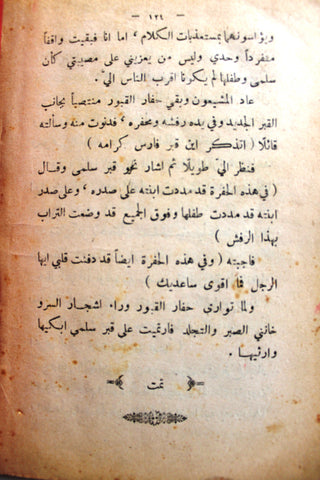 — ١٢٤ —
ويؤاسونهما بمستعذبات الكلام ، اما انا فبقيت واقفاً
منفرداً وحدي وليس من يعزيني على مصيبتي كأن
سلمى وطفلها لم يكونا اقرب الناس اليّ .
عاد المشيعون وبقي حفار القبور منتصباً بجانب
القبر الجديد وفي يده رفشه ومحفره ، فدنوت منه وسألته
قائلاً ( اتذكر اين قبر فارس كرامه )
فنظر اليّ طويلاً ثم اشار نحو قبر سلمى وقال
( في هذه الحفرة قد مددت ابنته على صدره ، وعلى صدر
ابنته قد مددت طفلها وفوق الجميع قد وضعت التراب
بهذا الرفش )
فاجبته ( وفي هذه الحفرة ايضاً قد دفنت قلبي ايها
الرجل فما اقوى ساعديك )
ولما توارى حفار القبور وراء اشجار السرو
خانني الصبر والتجلد فارتميت على قبر سلمى ابكيها
وارثيها .
تمت